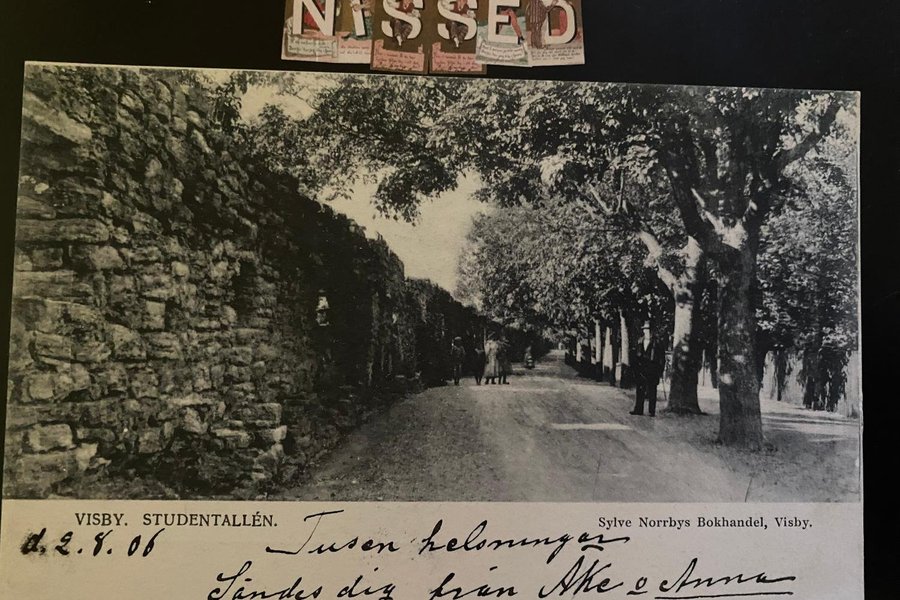 NISSED
VISBY. STUDENTALLÉN.
Sylve Norrbys Bokhandel, Visby.
d. 2.8.06
Tusen helsningar
Sändes dig från Åke o Anna